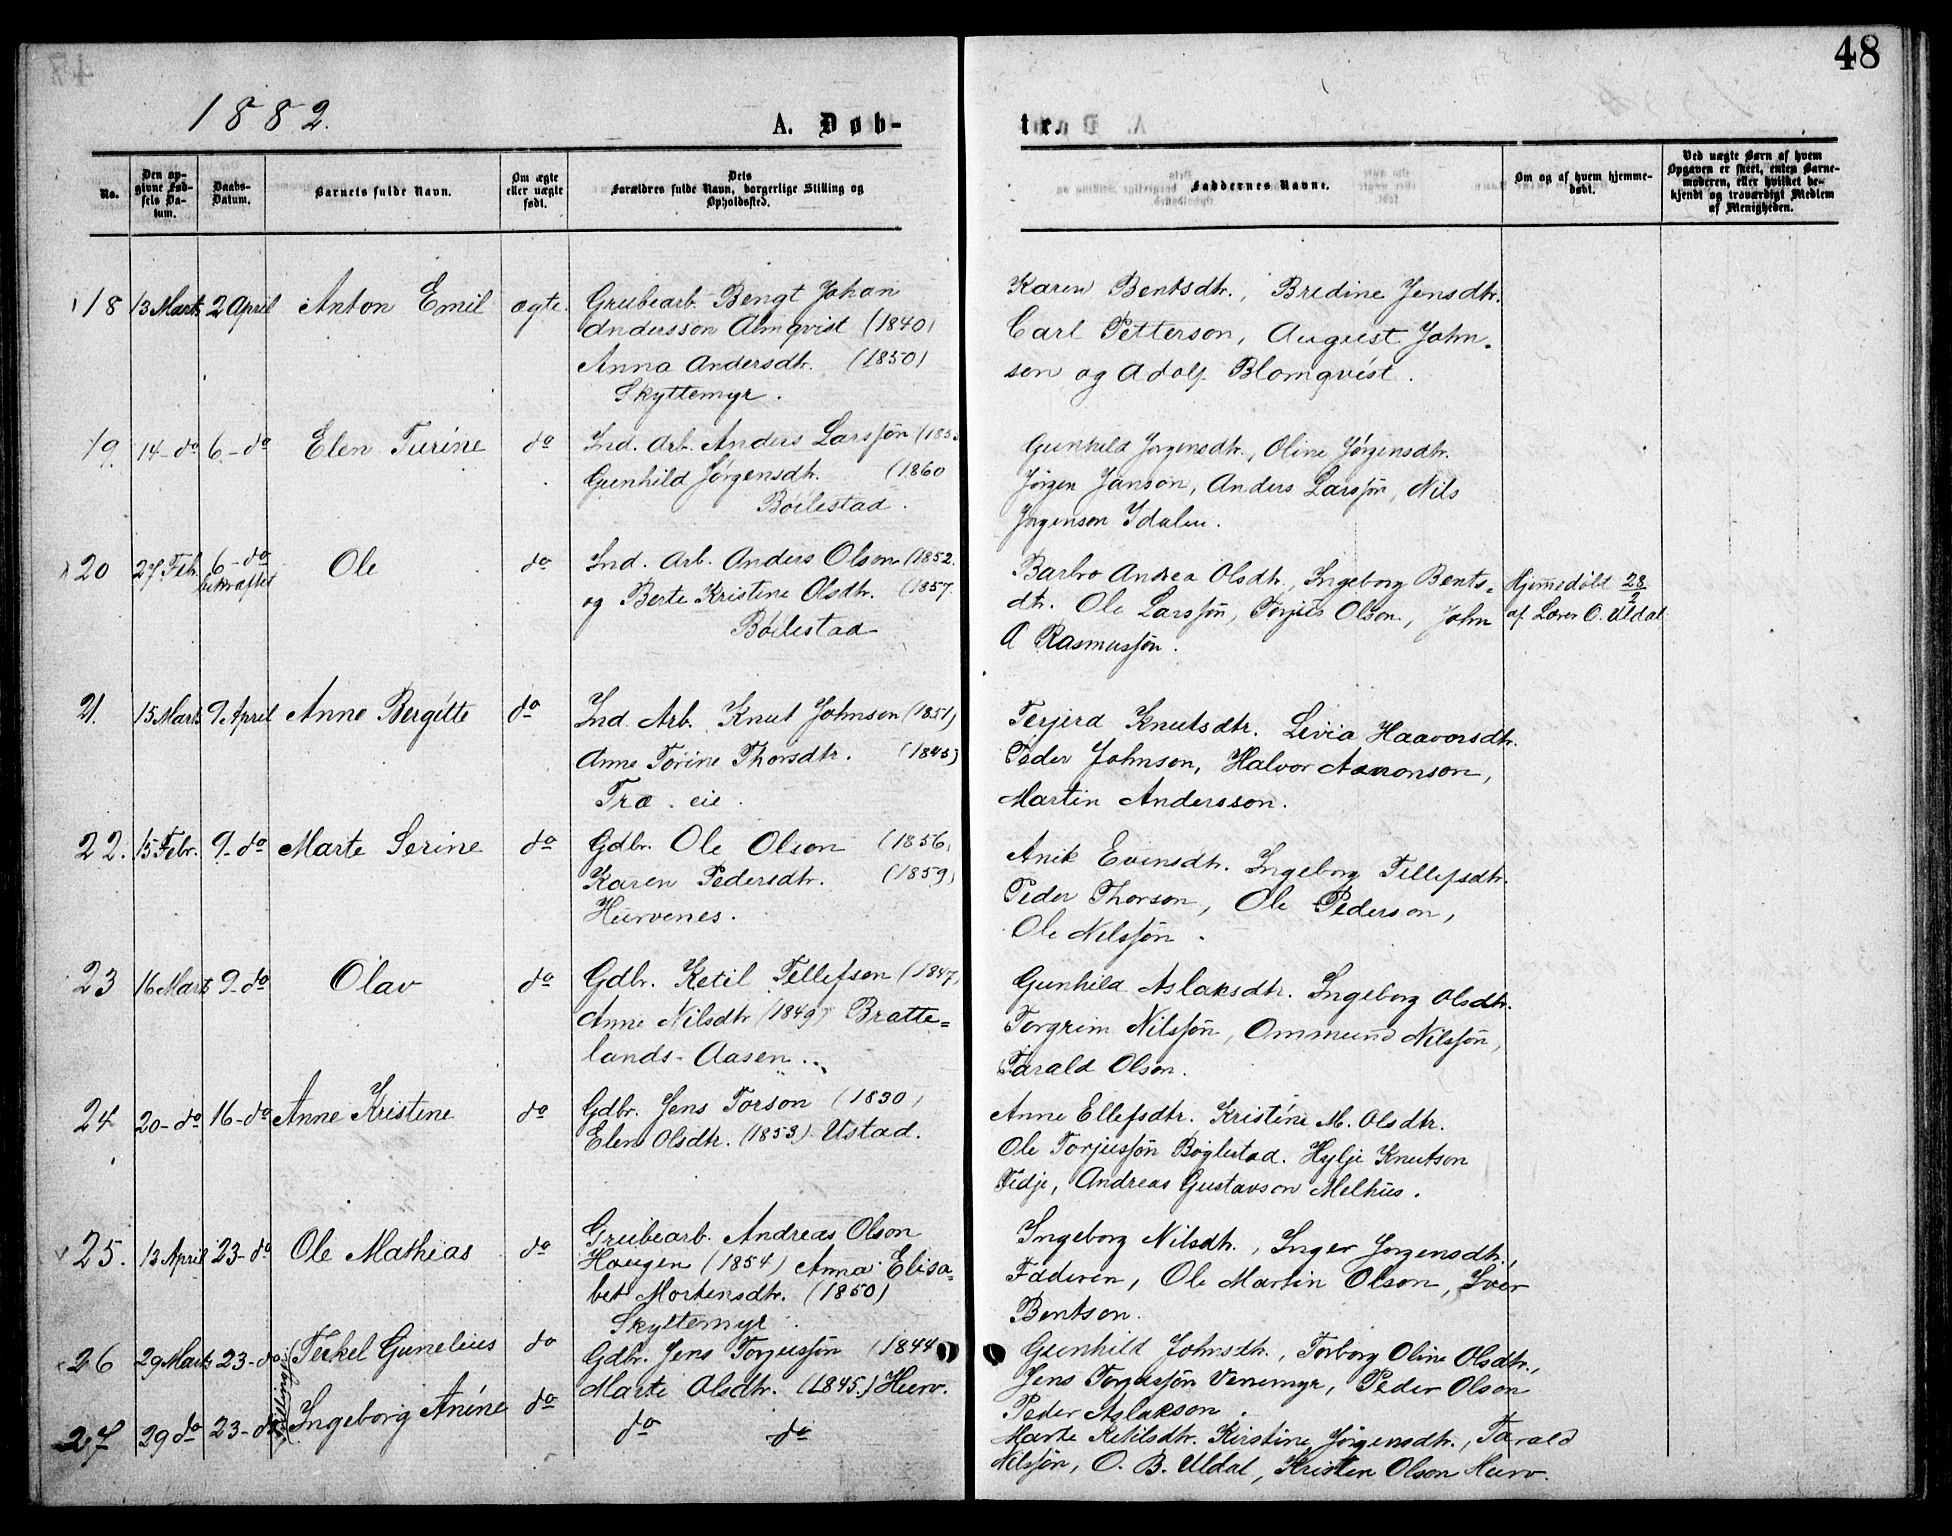 48
1882.
A. Døb-
tre.
No.
Den op-
givne Fød-
sels Da-
tum.
Daabs-
Datum.
Barnets fulde Navn.
Om ægte
eller uægte
født.
Dets
Forældres fulde Navn, borgerlige Stilling og
Opholdssted.
Faddernes Navne.
Om og af hvem hjemme-
døbt.
Ved uægte Børn af hvem
Opgaven er skeet, enten Barne-
moderen, eller hvilket be-
kjendt og troværdigt Medlem
af Menigheden.
18 13 Marts 2 April Anton Emil ægte. Grubearb. Bengt Johan
Andersson Almqvist (1840)
Anna Andersdtr. (1850)
Skyttemyr.
Karen Bentsdtr., Bredine Jensdtr.
Carl Petterson, August John-
son og Adolf Blomqvist.
19. 14-do 6-do Elen Turine do Ind. Arb. Anders Larssøn (185
Gunhild Jørgensdtr. (1860
Bøilestad.
Gunhild Jørgensdtr., Oline Jørgensdtr.
Jørgen Janson, Anders Larssøn, Nils
Jørgenson Idalen.
20 27 Feb. 6-do Ole do Ind. Arb. Anders Olson (1852.
bekræftet
og Berte Kristine Olsdtr. (1857.
Bøilestad
Barbro Andrea Olsdtr., Ingeborg Bents-
dtr. Ole Larssøn, Torjus Olson, John
A Rasmussøn.
Hjemmedøbt 28/2
af Lærer O. Uldal
21. 15 Marts 9. April Anne Bergitte do Ind. Arb. Knut Johnson (1851)
Anne Torine Thorsdtr. (1845)
Træ. eie.
Terjerd Knutsdtr. Livia Haavorsdtr.
Peder Johnson, Halvor Aaronson,
Martin Andersson.
22. 15 Febr. 9-do Marte Serine do Gdbr. Ole Olson (1856,
Karen Pedersdtr. (1859)
Hurvenes.
Anik Evinsdtr. Ingeborg Tellefsdtr.
Peder Thorson, Ole Pederson,
Ole Nilssøn.
23 16 Marts 9-do Olav do Gdbr. Ketil Tellefsen (1847,
Anne Nilsdtr (1849) Bratte-
lands-Aasen.
Gunhild Aslaksdtr. Ingeborg Olsdtr.
Torgrim Nilssøn, Ommund Nilssøn,
Tarald Olson.
24 20-do 16-do Anne Kristine do Gdbr. Jens Torson (1830)
Elen Olsdtr. (1853) Ustad.
Anne Ellefsdtr. Kristine M. Olsdtr.
Ole Torjussøn Bøglestad. Hylje Knutson
Tedje, Andreas Gustavson Melhus.
25. 13 April 23-do Ole Mathias do Grubearb. Andreas Olson
Haugen (1854) Anna Elisa-
bet Mortensdtr. (1850)
Skyttemyr.
Ingeborg Nilsdtr., Inger Jørgensdtr.,
Faderen, Ole Martin Olson, Iver
Bentson.
26 29 Marts 23-do Terkel Gunelius do Gdbr. Jens Torjussøn (1844
Marte Olsdtr. (1845.) Hurv.
Gunhild Johnsdtr., Torborg Oline Olsdtr.,
Jens Torjussøn Venemyr, Peder Olson
Peder Aslakson.
Tvillinger
27 29 do 23-do Ingeborg Anine do do do
Marte Ketilsdtr. Kirstine Jørgensdtr., Tarald
Nilssøn, O. B. Uldal, Kristen Olson Hurv.